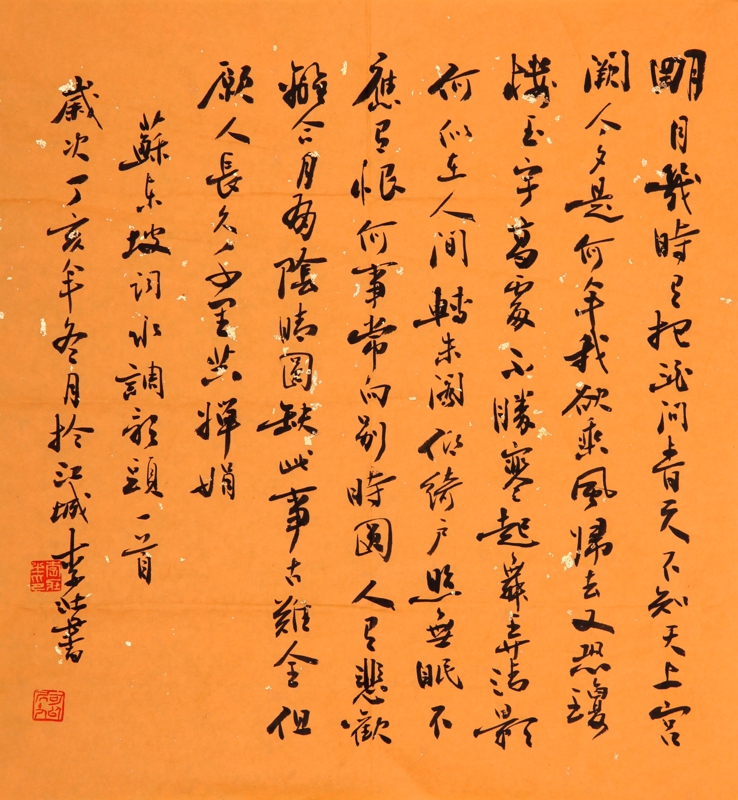 明月幾時有把酒问青天不知天上宫
阙今夕是何年我欲乘風歸去又恐瓊
樓玉宇高處不勝寒起舞弄清影
何似在人间轉朱阁低綺户照無眠不
應有恨何事常向别時圆人有悲歡
離合月有陰晴圆缺此事古難全但
願人長久千里共嬋娟
蘇东坡词水調歌頭一首
歲次丁亥年冬月於江城李書